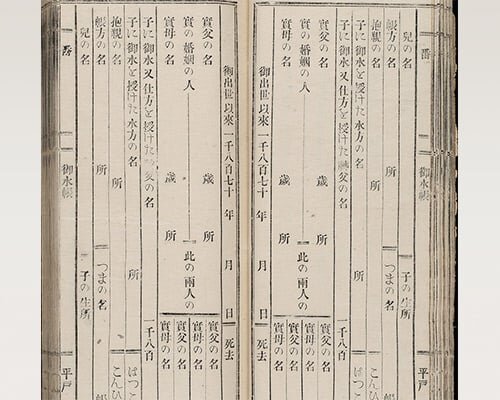 一番 御水帳 平戸
兒の名 子の生所
帳方の名 所 つまの名
抱親の名 所 こんひ
子に御水を授けた水方の名 所 ばつこ
子に御水又仕方を授けた 父の名 一千八百
實父の名 歳 所
實の婚姻の人 此の兩人の
實母の名 歳 所
實父の名
實母の名
實父の名
實母の名
御出世以來一千八百七十 年 月 日 死去
御出世以來一千八百七十 年 月 日 死去
實父の名 歳 所
實の婚姻の人 此の兩人の
實母の名 歳 所
實父の名
實母の名
實父の名
實母の名
子に御水又仕方を授けた 父の名 一千八百
子に御水を授けた水方の名 所 ばつこ
抱親の名 所 こんひ
帳方の名 所 つまの名
兒の名 子の生所
一番 御水帳 平戸